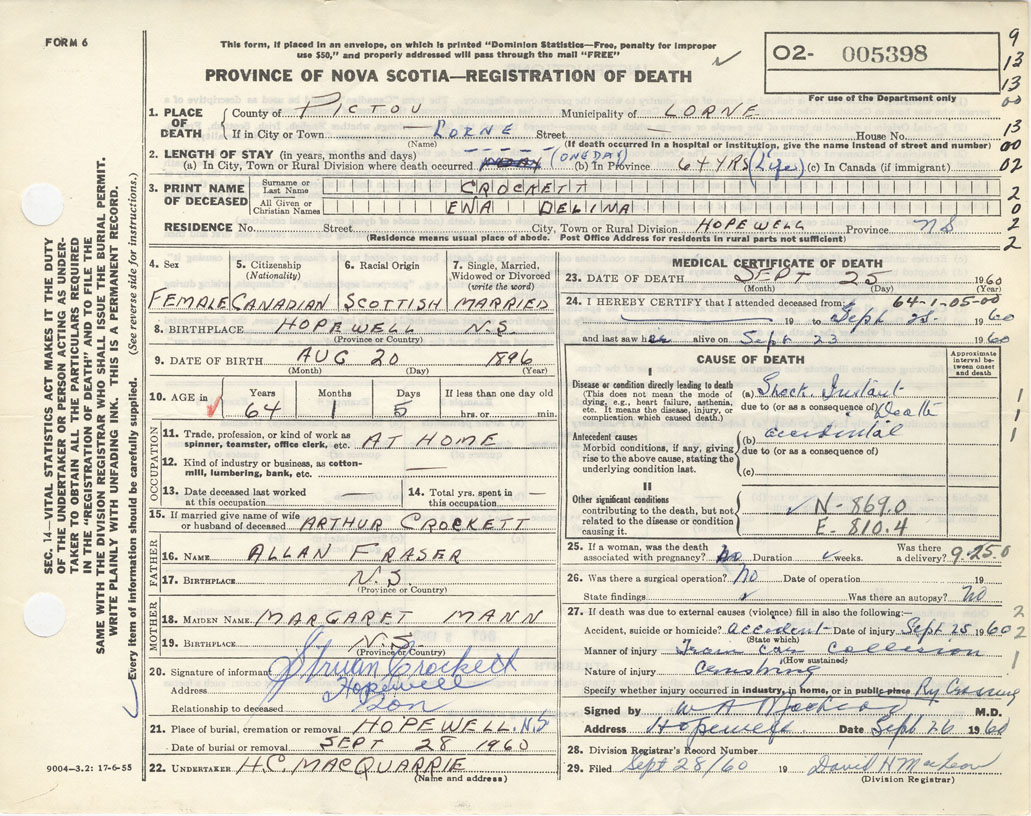 FORM 6
This form, if placed in an envelope, on which is printed "Dominion Statistics—Free, penalty for improper
use $50," and properly addressed will pass through the mail "FREE"
PROVINCE OF NOVA SCOTIA—REGISTRATION OF DEATH
O2- 005398
For use of the Department only
9
13
13
00
13
00
02
2
0
2
2
SEC. 14—VITAL STATISTICS ACT MAKES IT THE DUTY
OF THE UNDERTAKER OR PERSON ACTING AS UNDER-
TAKER TO OBTAIN ALL THE PARTICULARS REQUIRED
IN THE "REGISTRATION OF DEATH" AND TO FILE THE
SAME WITH THE DIVISION REGISTRAR WHO SHALL ISSUE THE BURIAL PERMIT.
WRITE PLAINLY WITH UNFADING INK. THIS IS A PERMANENT RECORD.
Every item of information should be carefully supplied. (See reverse side for instructions.)
1. PLACE OF DEATH
County of PICTOU Municipality of LORNE
If in City or Town — LORNE Street — House No.
(Name) (If death occurred in a hospital or institution, give the name instead of street and number)
2. LENGTH OF STAY (in years, months and days)
(a) In City, Town or Rural Division where death occurred (ONE DAY) (b) In Province 64 YRS (Life) (c) In Canada (if immigrant)
3. PRINT NAME OF DECEASED
Surname or Last Name CROCKETT
All Given or Christian Names ENA DELIMA
RESIDENCE No. Street City, Town or Rural Division HOPEWELL Province NS
(Residence means usual place of abode. Post Office Address for residents in rural parts not sufficient)
4. Sex 5. Citizenship (Nationality) 6. Racial Origin 7. Single, Married, Widowed or Divorced (write the word)
FEMALE CANADIAN SCOTTISH MARRIED
8. BIRTHPLACE HOPEWELL N.S.
(Province or Country)
9. DATE OF BIRTH AUG 20 1896
(Month) (Day) (Year)
10. AGE in Years Months Days If less than one day
64 1 5 hrs. or min.
OCCUPATION
11. Trade, profession, or kind of work as
spinner, teamster, office clerk, etc. AT HOME
12. Kind of industry or business, as cotton-
mill, lumbering, bank, etc. —
13. Date deceased last worked
at this occupation —
14. Total yrs. spent in
this occupation —
15. If married give name of wife
or husband of deceased ARTHUR CROCKETT
FATHER
16. NAME ALLAN FRASER
17. BIRTHPLACE N.S.
(Province or Country)
MOTHER
18. MAIDEN NAME MARGARET MANN
19. BIRTHPLACE N.S.
(Province or Country)
20. Signature of informant Struan Crockett
Address Hopewell
Relationship to deceased Son
21. Place of burial, cremation or removal HOPEWELL. N.S
Date of burial or removal SEPT 28 1960
22. UNDERTAKER H.C. MACQUARRIE
(Name and address)
9004—3.2: 17-6-55
MEDICAL CERTIFICATE OF DEATH
23. DATE OF DEATH SEPT 25 1960
(Month) (Day) (Year)
24. I HEREBY CERTIFY that I attended deceased from: 64-1-05-00
19 to Sept 25 1960
and last saw her alive on Sept 23 1960
CAUSE OF DEATH
Approximate interval be-tween onset and death
I
Disease or condition directly leading to death
(This does not mean the mode of
dying, e.g., heart failure, asthenia,
etc. It means the disease, injury, or
complication which caused death.)
(a) Shock Instant
due to (or as a consequence of) Death
Antecedent causes
Morbid conditions, if any, giving
rise to the above cause, stating the
underlying condition last.
(b) accidental
due to (or as a consequence of)
(c)
1
1
1
II
Other significant conditions
contributing to the death, but not
related to the disease or condition
causing it.
N-869.0
E-810.4
25. If a woman, was the death
associated with pregnancy? no Duration weeks. Was there a delivery? 9-25.0
26. Was there a surgical operation? No Date of operation 19
State findings Was there an autopsy? No
27. If death was due to external causes (violence) fill in also the following:—
Accident, suicide or homicide? accident Date of injury Sept 25 1960
(State which)
Manner of injury Train Car Collision
(How sustained)
Nature of injury Crushing
Specify whether injury occurred in industry, in home, or in public place Ry Crossing
2
2
1
1
Signed by M.D.
Address Hopewell Date Sept 26 1960
28. Division Registrar's Record Number
29. Filed Sept 28/60 19 David H MacLeod
(Division Registrar)